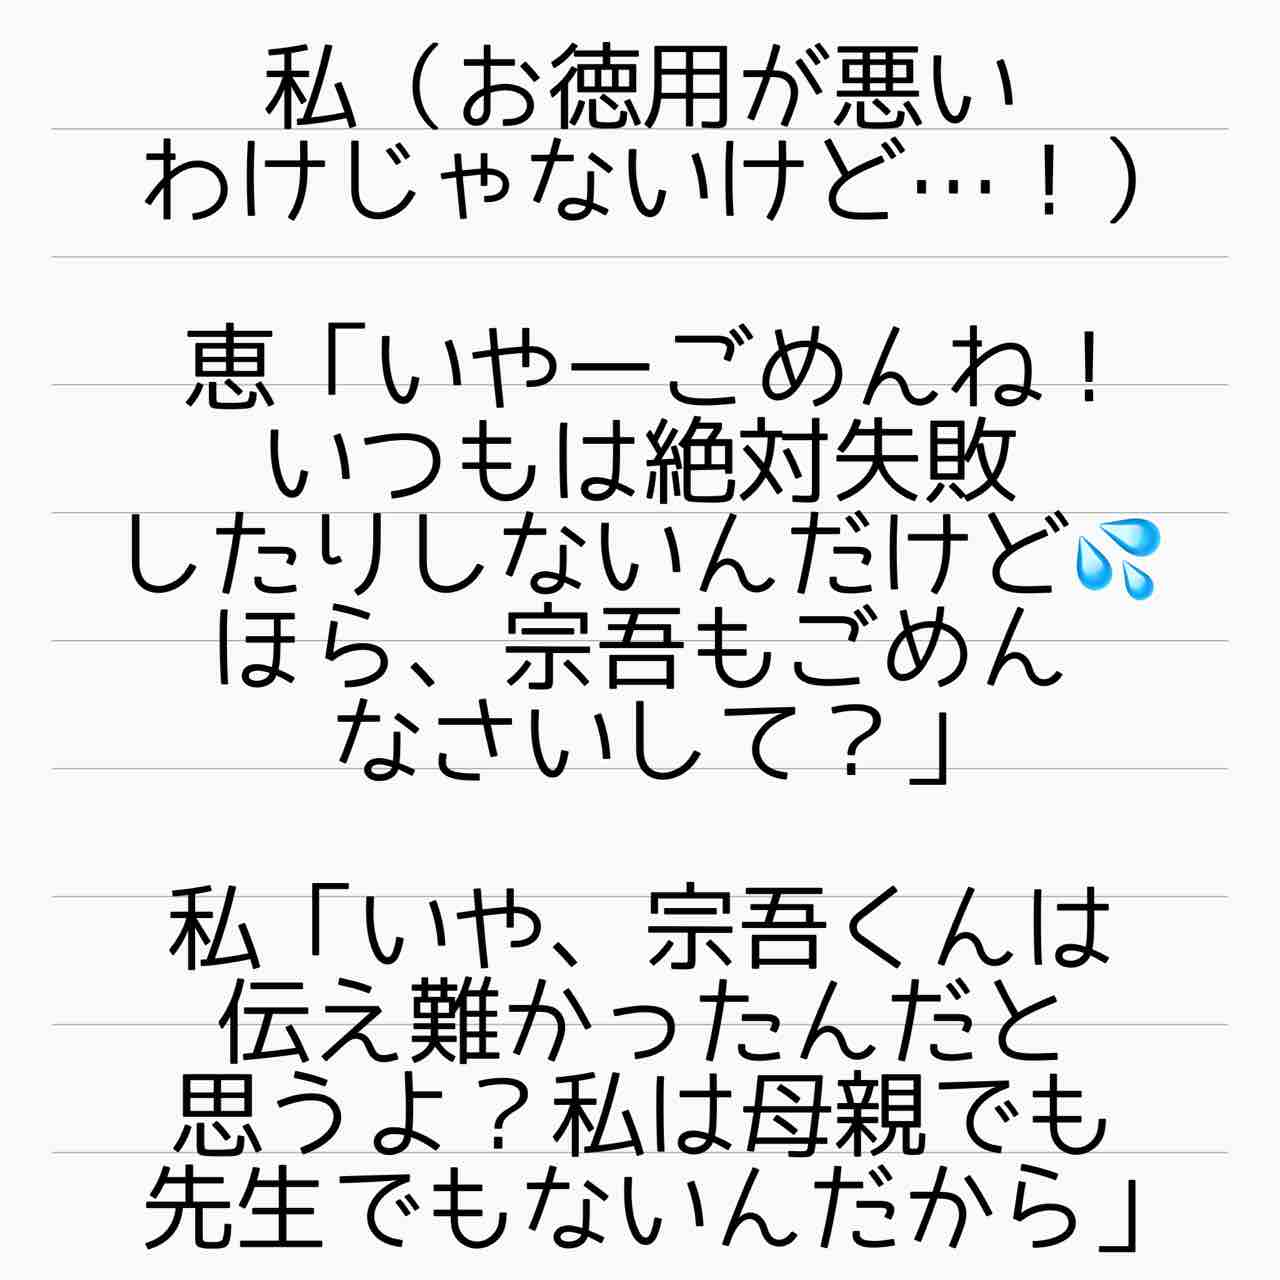 私（お徳用が悪い
わけじゃないけど…！）
恵「いやーごめんね！
いつもは絶対失敗
したりしないんだけど💦
ほら、宗吾もごめん
なさいして？」
私「いや、宗吾くんは
伝え難かったんだと
思うよ？私は母親でも
先生でもないんだから」